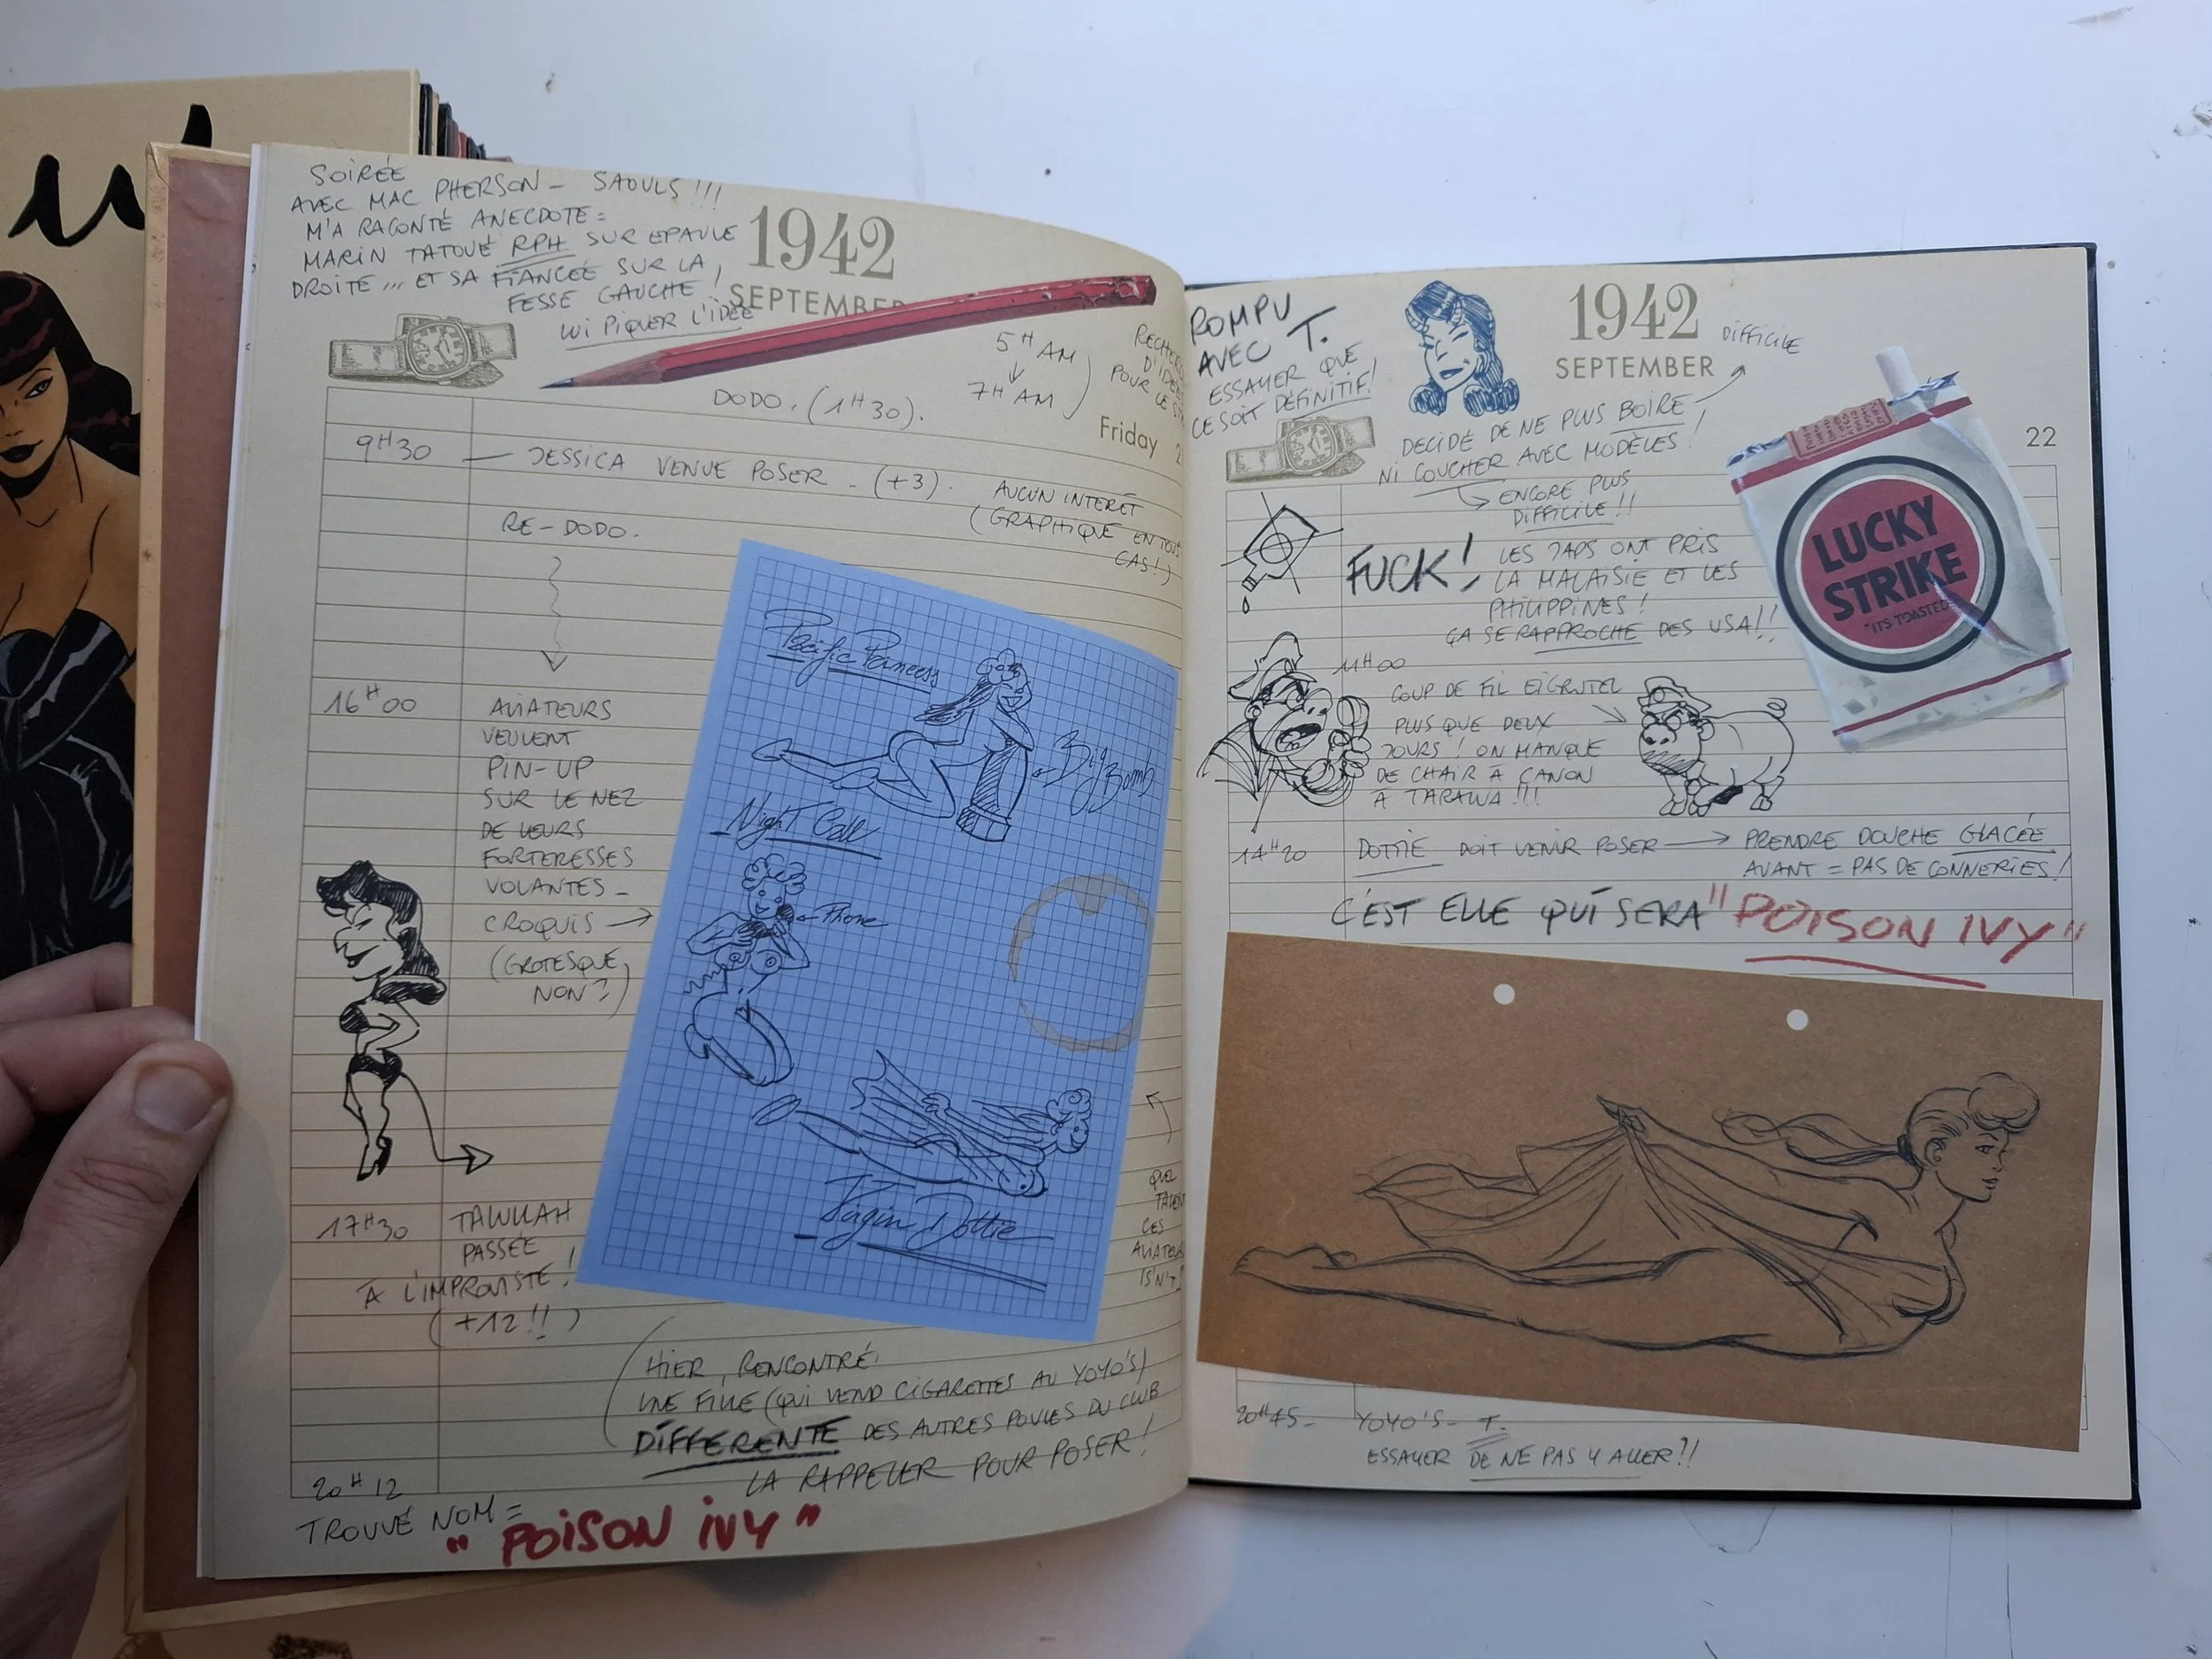 SOIRÉE
AVEC MAC PHERSON - SAOULS !!!
M'A RACONTÉ ANECDOTE =
MARIN TATOUÉ RPH SUR EPAULE
DROITE... ET SA FIANCÉE SUR LA
FESSE GAUCHE !
LUI PIQUER L'IDÉE
1942
SEPTEMBER
5H AM
7H AM
DODO. (1H30).
Friday
9H30 — JESSICA VENUE POSER - (+3).
AUCUN INTERÊT
(GRAPHIQUE EN TOUS
CAS!)
RE-DODO.
16H00 AVIATEURS
VEULENT
PIN-UP
SUR LE NEZ
DE LEURS
FORTERESSES
VOLANTES -
CROQUIS →
(GROTESQUE,
NON?)
Pacific Princess
Big Bomb
Night Call
Phone
Dottie
CES
17H30 TALULLAH
PASSÉE
À L'IMPROVISTE !
(+12!!)
HIER, RENCONTRÉ
UNE FILLE (QUI VEND CIGARETTES AU YOYO'S)
DIFFERENTE DES AUTRES POULES DU CLUB
LA RAPPELER POUR POSER !
20H12
TROUVÉ NOM =
"POISON IVY"
ROMPU
AVEC T.
ESSAYER QUE
CE SOIT DÉFINITIF!
1942
SEPTEMBER
DIFFICILE
22
DECIDÉ DE NE PLUS BOIRE
NI COUCHER AVEC MODÈLES !
ENCORE PLUS
DIFFICILE !!
LUCKY
STRIKE
"ITS TOASTED"
FUCK! LES JAPS ONT PRIS
LA MALAISIE ET LES
PHILIPPINES !
ÇA SE RAPPROCHE DES USA!!
11H00
COUP DE FIL EIGRUTEL
PLUS QUE DEUX
JOURS ! ON MANQUE
DE CHAIR À CANON
À TARAWA !!!
14H20 DOTTIE DOIT VENIR POSER → PRENDRE DOUCHE GLACÉE
AVANT = PAS DE CONNERIES !
C'EST ELLE QUI SERA "POISON IVY"
20H45 - YOYO'S - T.
ESSAYER DE NE PAS Y ALLER ?!